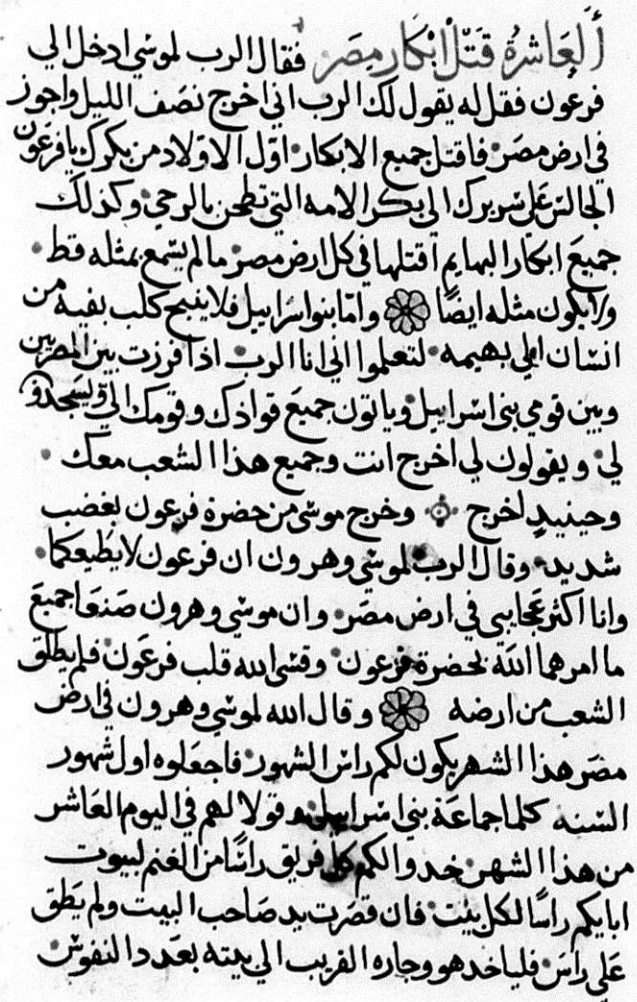 ألعاشرة قتل ابكار مصر فقال الرب لموسي ادخل الي
فرعون فقل له يقول لك الرب اني اخرج نصف الليل واجوز
في ارض مصر فاقتل جميع الابكار اول الاولاد من بكرك يا فرعون
الجالس على سريرك الي بكر الامه التي تطحن بالرحي وكذلك
جميع ابكار البهايم اقتلها في كل ارض مصر ما لم يسمع بمثله قط
ولا يكون مثله ايضًا واما بنوا اسراييل فلا ينبح كلب بفمه من
انسان الي بهيمه لتعلموا اني انا الرب اذا فرزت بين المصريين
وبين قومي بني اسراييل وياتون جميع قوادك وقومك الي ويسجدو
لي ويقولون لي اخرج انت وجميع هذا الشعب معك
وحينيدٍ اخرج وخرج موسي من حضرة فرعون بغضب
شديد وقال الرب لموسي وهرون ان فرعون لا يطيعكما
وانا اكثر عجايبي في ارض مصر وان موسي وهرون صنعا جميع
ما امرهما الله بحضرة فرعون وقسى الله قلب فرعون فلم يطلق
الشعب من ارضه وقال الله لموسي وهرون في ارض
مصر هذا الشهر يكون لكم راس الشهور فاجعلوه اول شهور
السنه كلما جماعة بني اسراييل وقولا لهم في اليوم العاشر
من هذا الشهر خدوا لكم كل فريق راسًا من الغنم لبيوت
ابايكم راسًا لكل بيت فان قصرت يد صاحب البيت ولم يطق
علي راس فلياخد هو وجاره القريب الي بيته بعدد النفوس